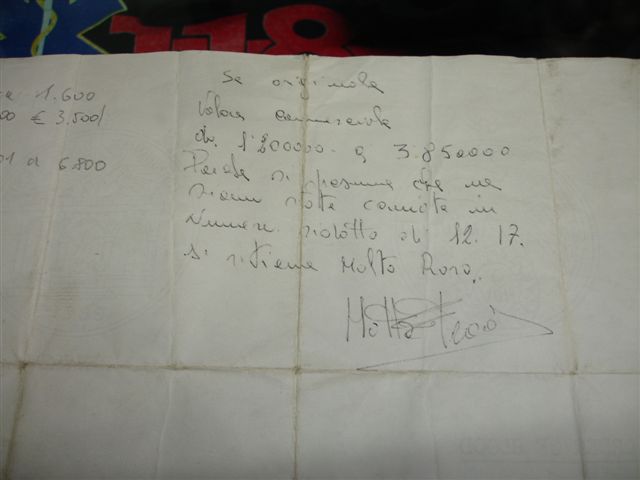 118
1.600
00 € 3.500/
01 a 6.800
Se originale
Valore commerciale
da. 1'200000. a 3.850000
Perche si presume che ne
siano state coniate in
numero ridotto di 12. 17.
Si ritiene Molto Raro.